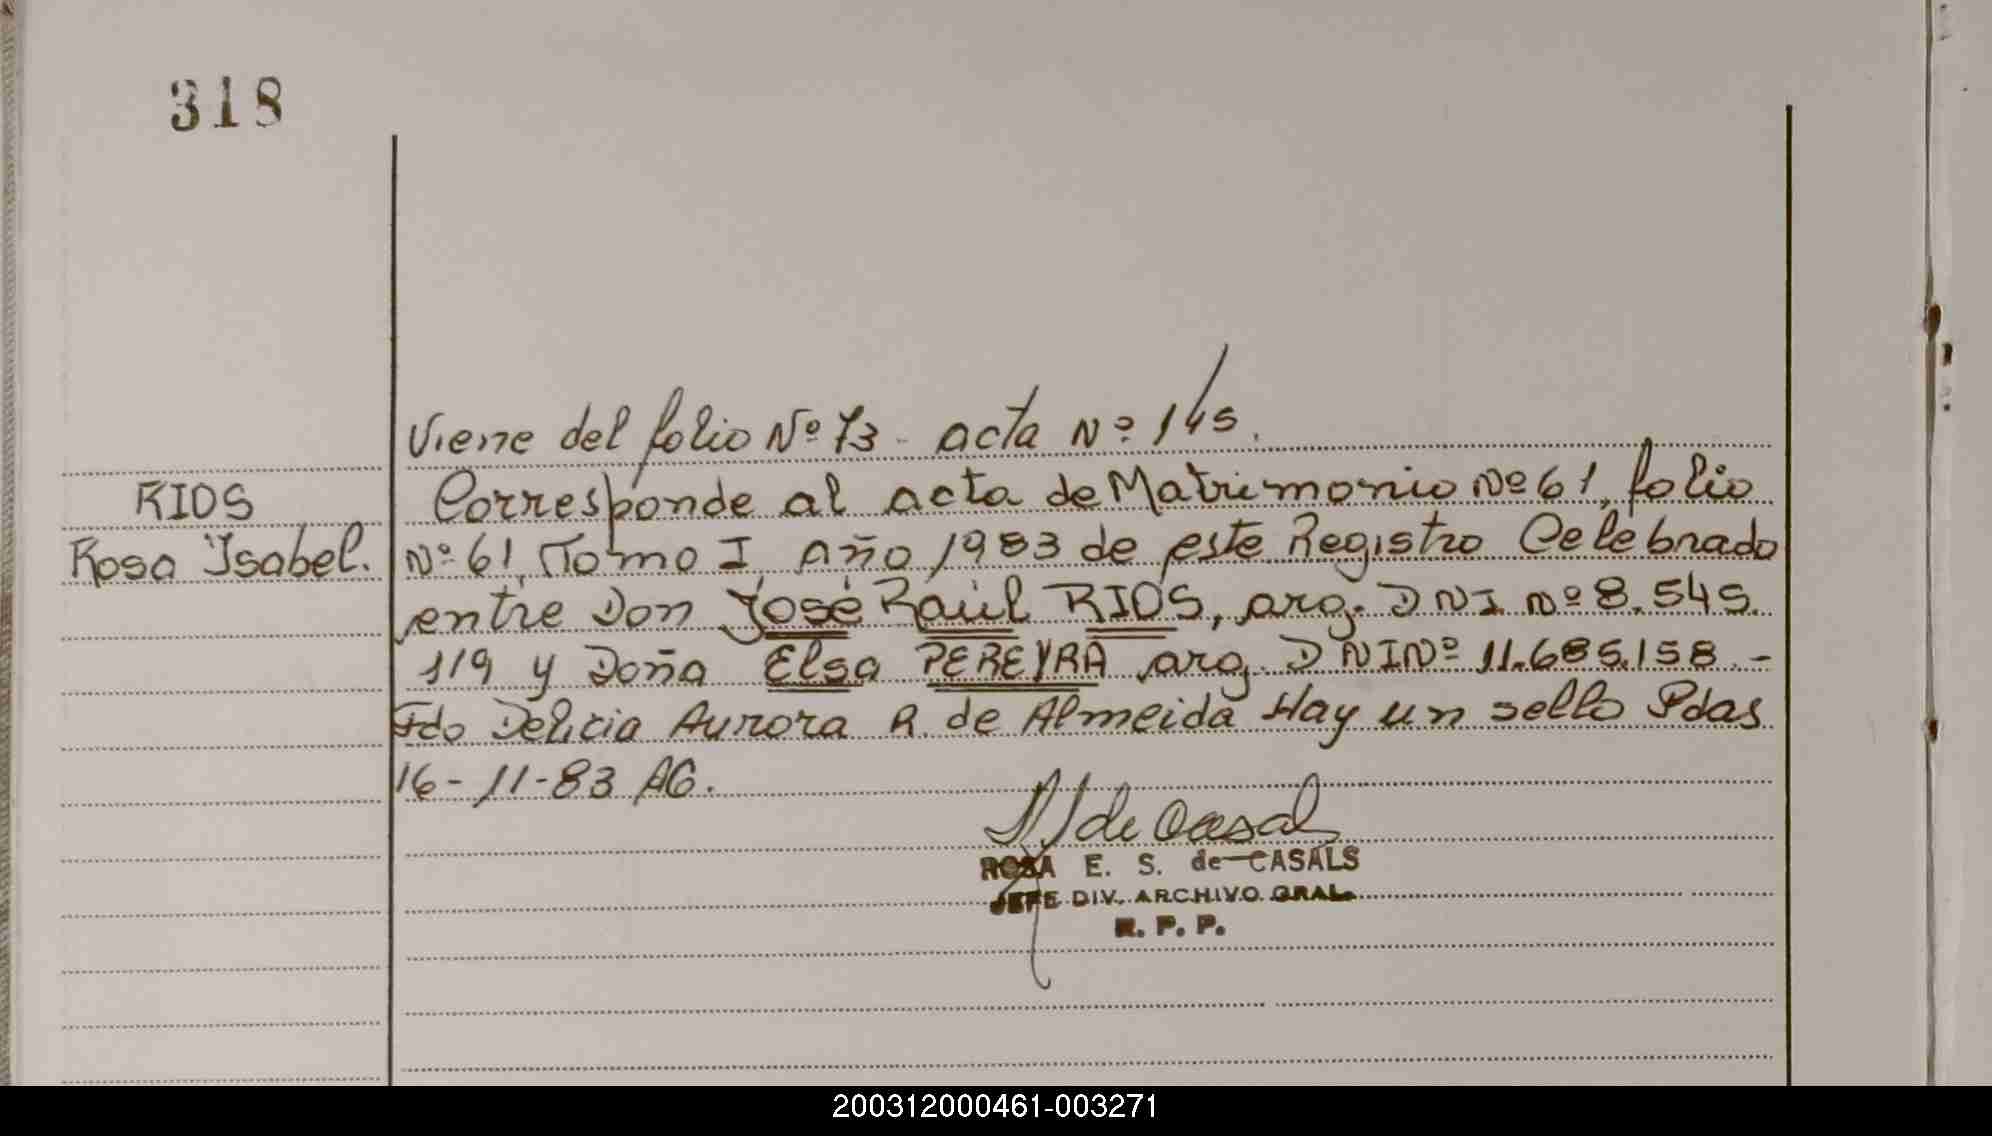 318
Viene del folio Nº 73 - acta Nº 145.
RIOS
Rosa Ysabel.
Corresponde al acta de Matrimonio Nº 61, folio
Nº 61, Tomo I, Año 1983 de este Registro Celebrado
entre Don José Raúl RIOS, arg. DNI Nº 8.545.
119 y Doña Elsa PEREYRA arg. DNI Nº 11.685.158. -
Fdo Delicia Aurora R. de Almeida Hay un sello Pdas
16-11-83 AG.
de Casals
ROSA E. S. de CASALS
JEFE DIV. ARCHIVO GRAL.
R. P. P.
200312000461-003271